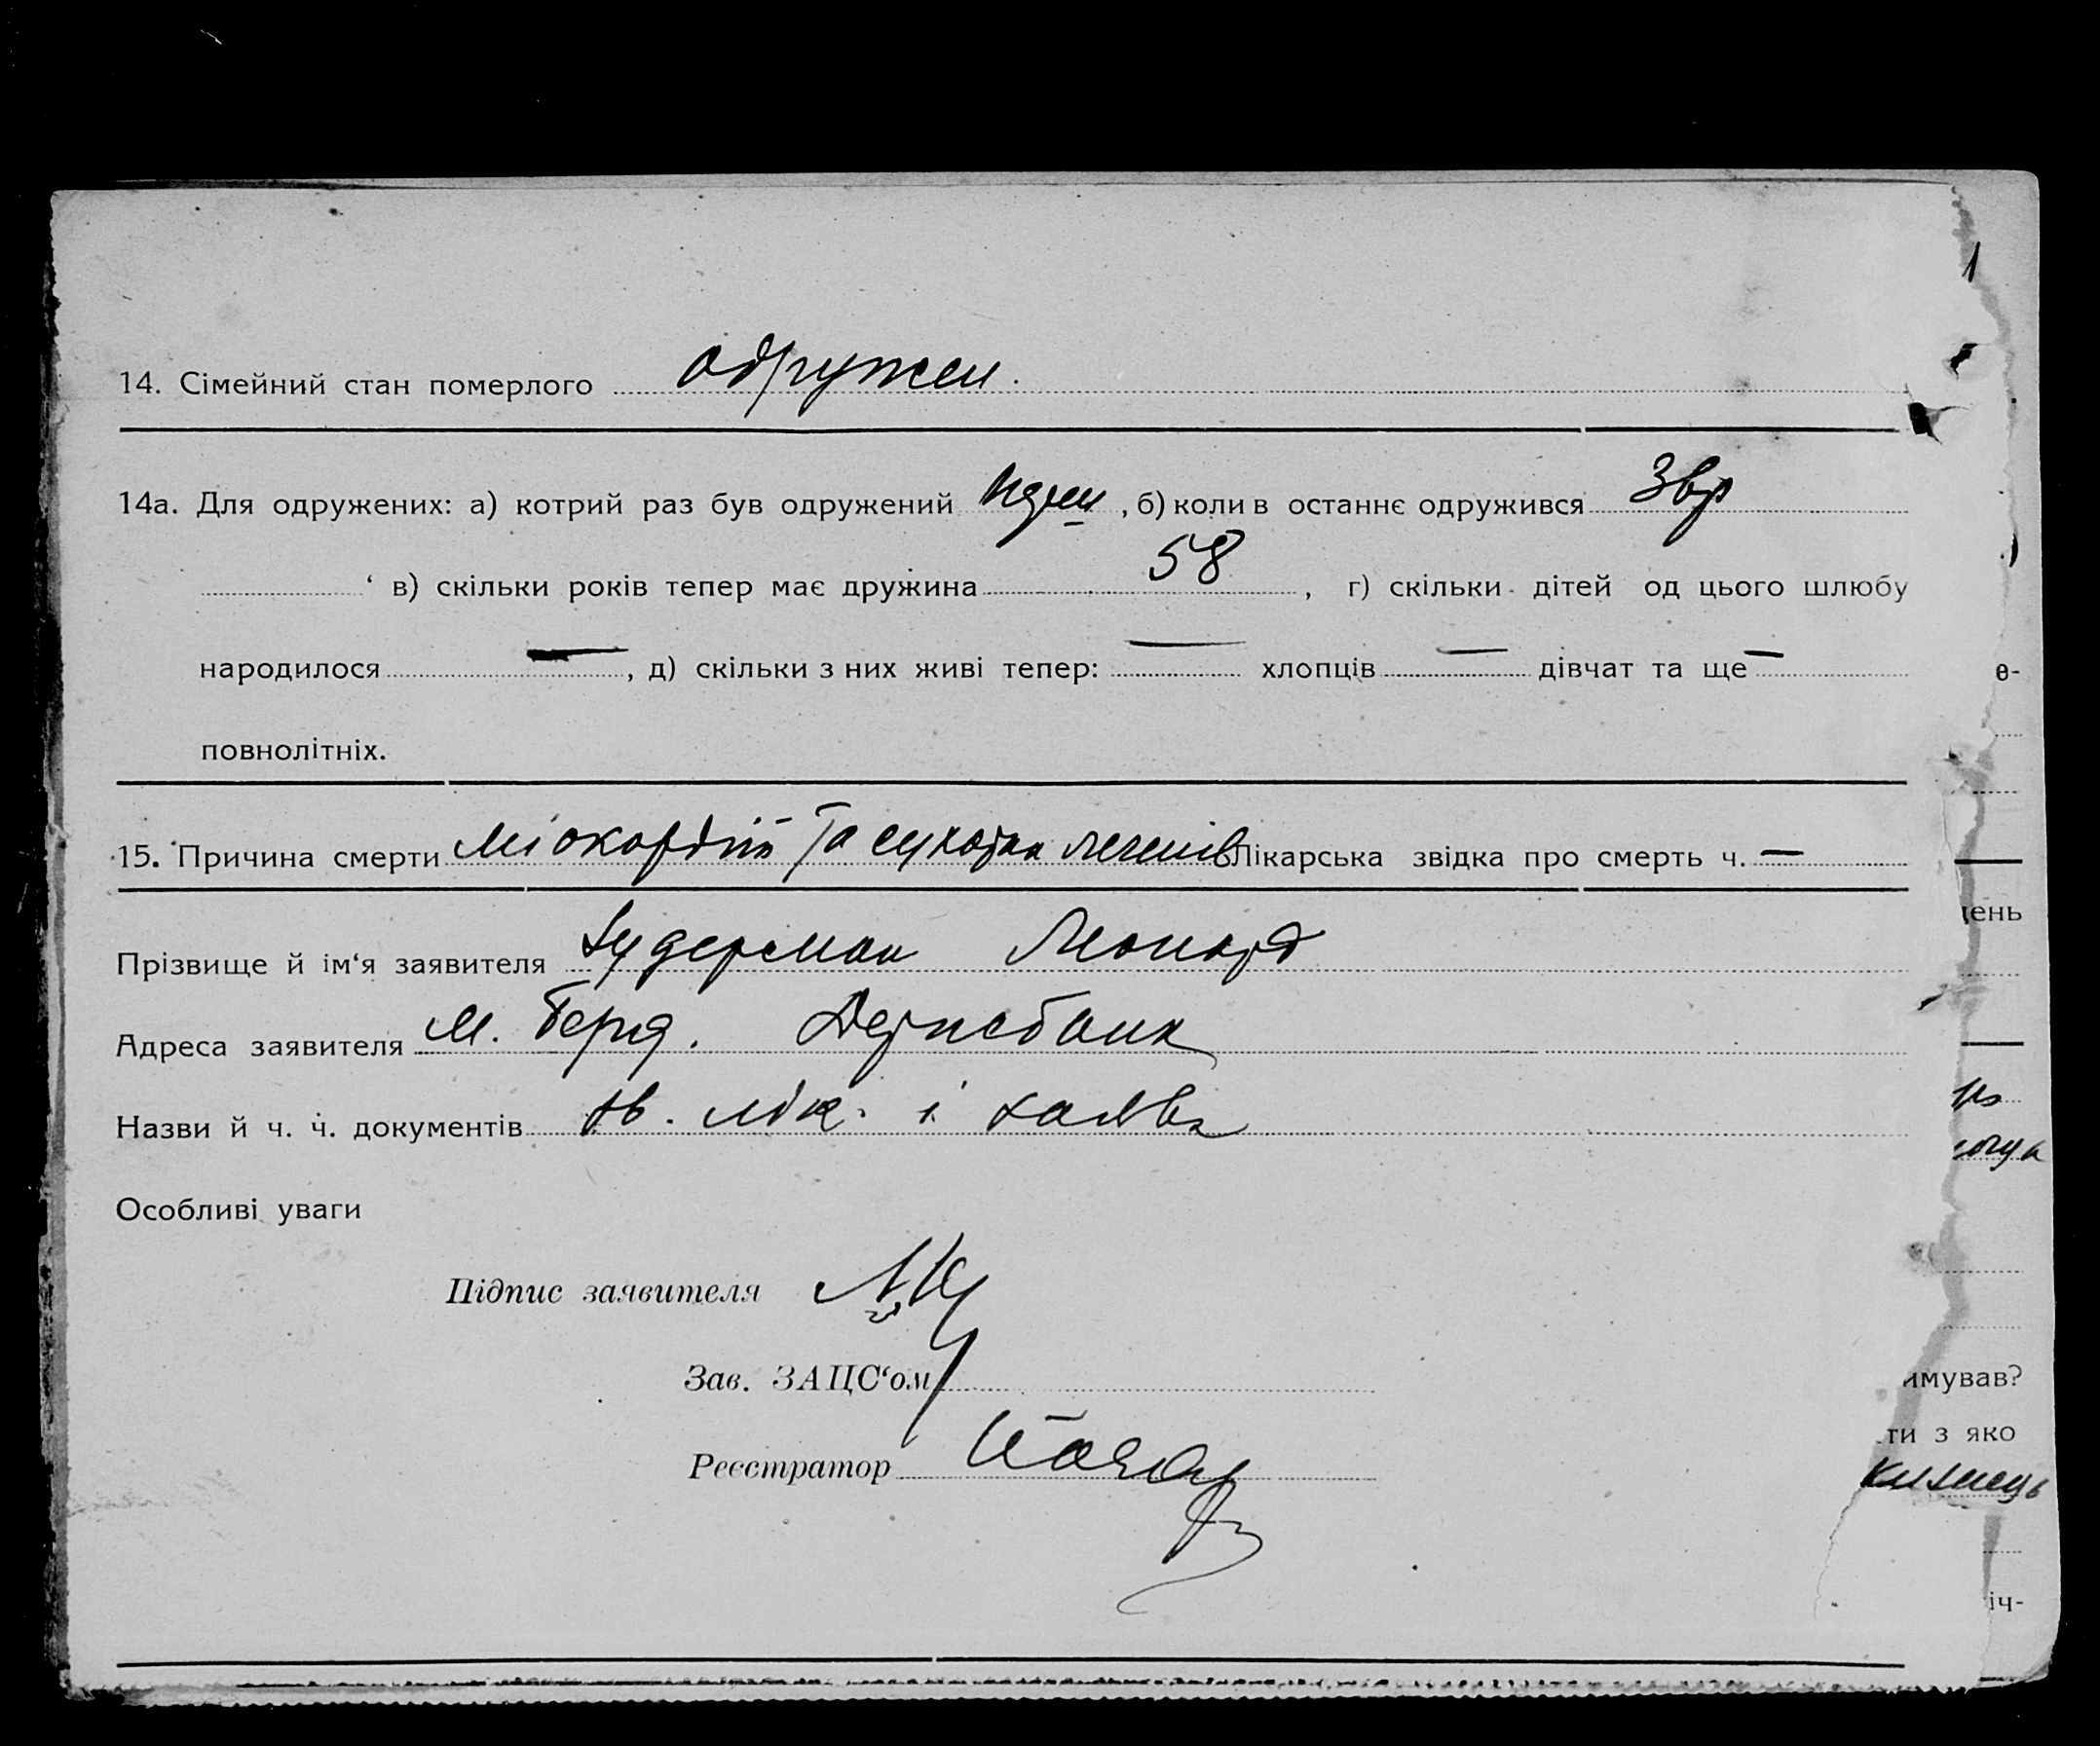 14. Сімейний стан померлого одружен.
14а. Для одружених: а) котрий раз був одружений , б) коли в останнє одружився
‘ в) скільки років тепер має дружина 58 , г) скільки дітей од цього шлюбу
народилося — , д) скільки з них живі тепер: — хлопців — дівчат та ще —
повнолітніх.
15. Причина смерти міокордіт та сухоти легенів Лікарська звідка про смерть ч. —
Прізвище й ім‘я заявителя Зудерман Леонард
Адреса заявителя м. Берд. Держбанк
Назви й ч. ч. документів лік. і заява
Особливі уваги
Підпис заявителя
Зав. ЗАЦС‘ом
Реєстратор
е-
ень
имував?
ти з яко
іч-